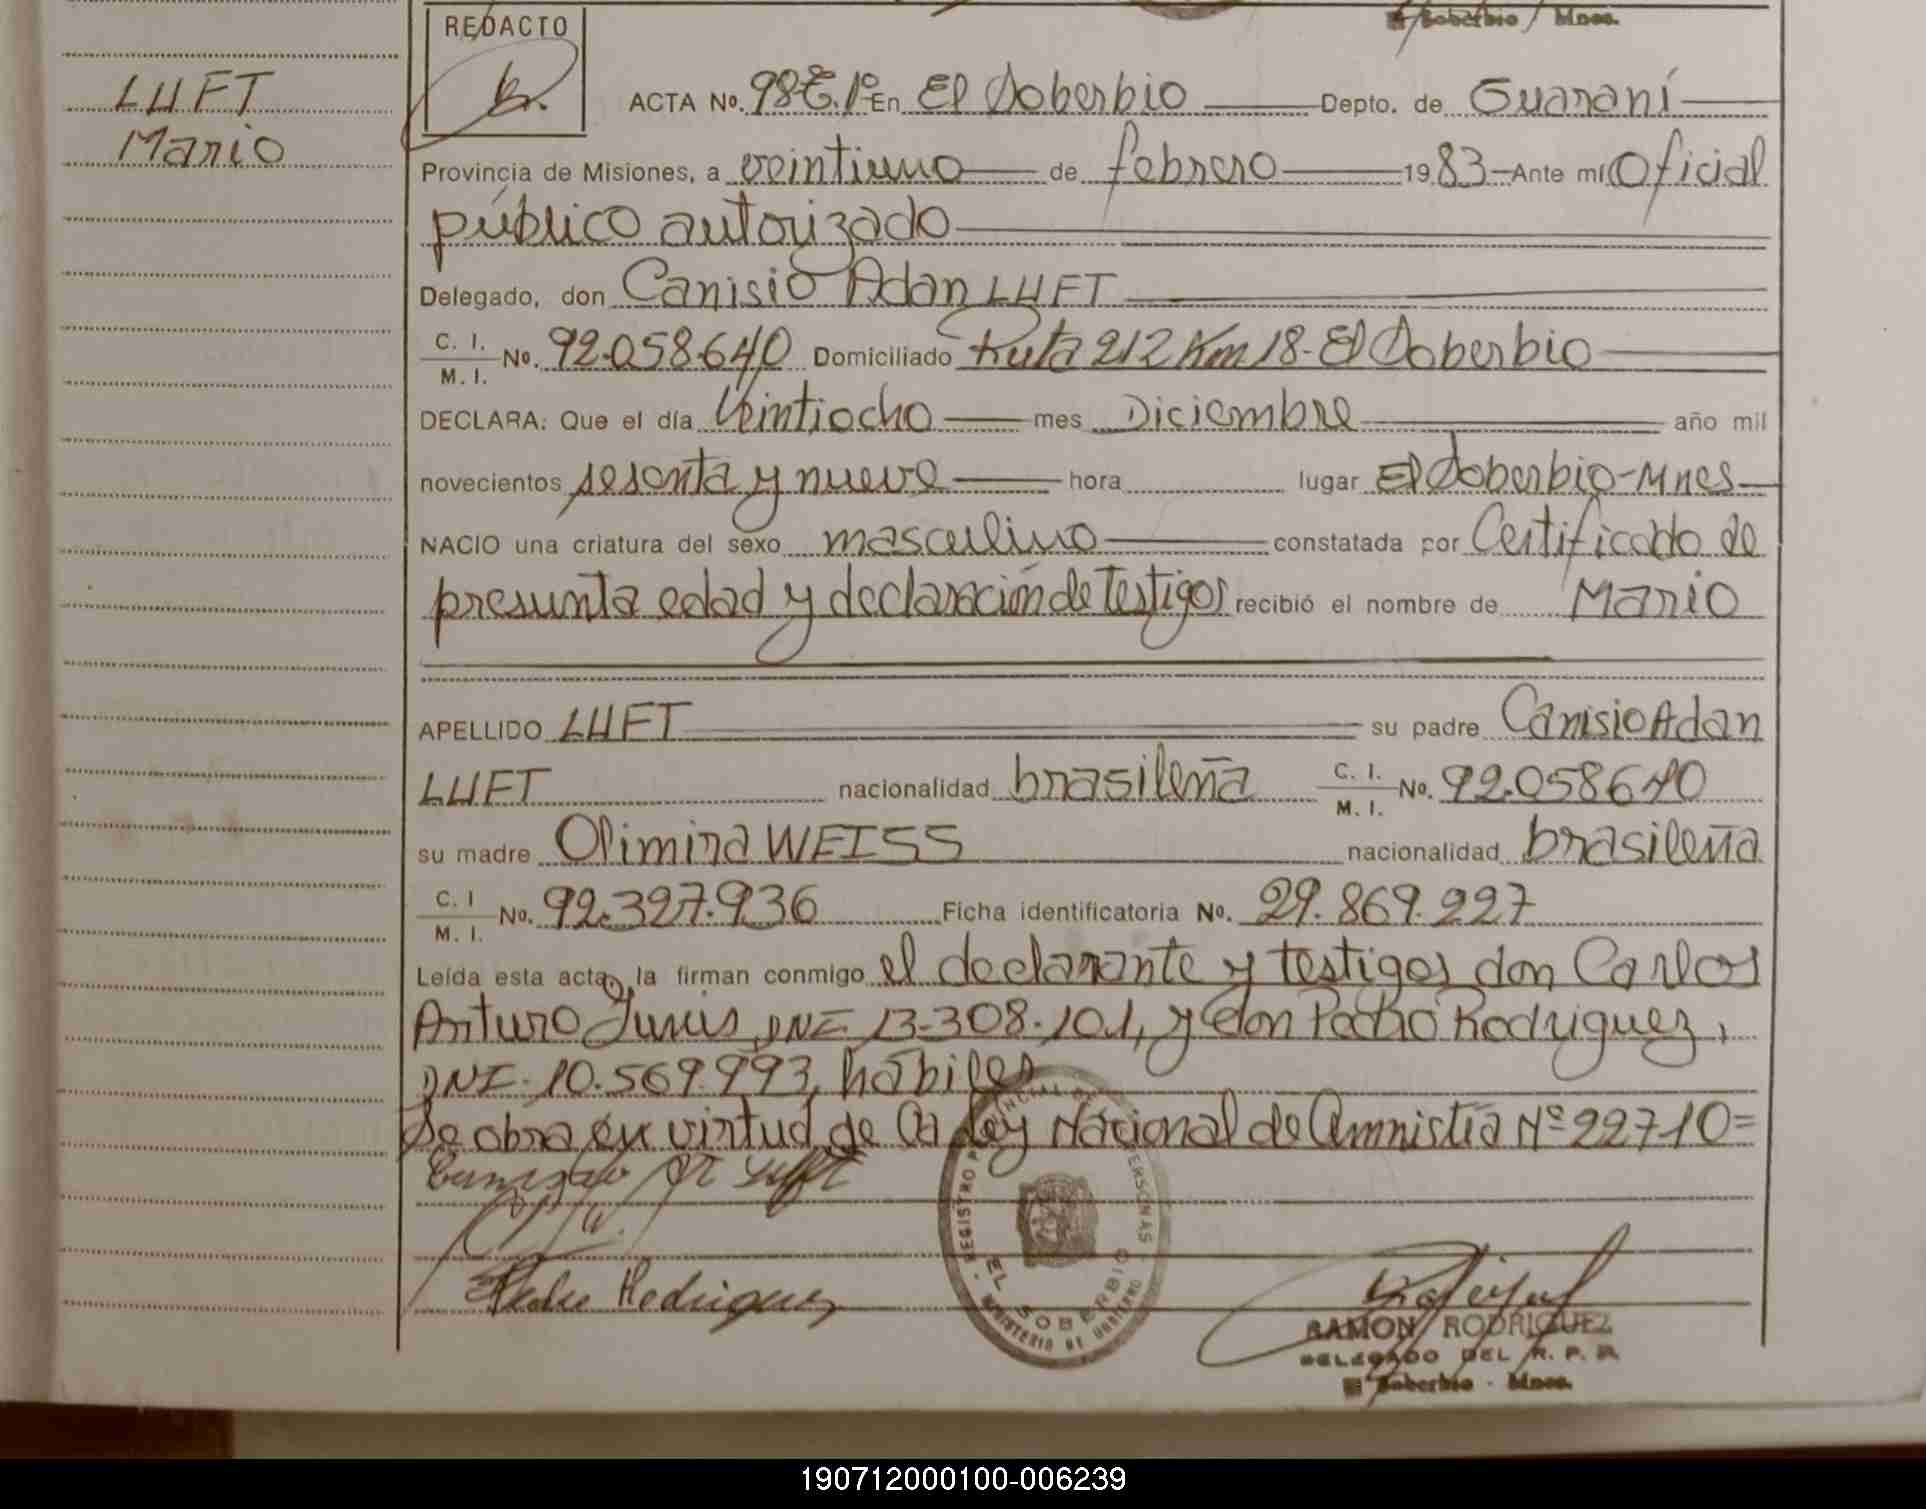 Soberbio / Mnes.
REDACTO
LUFT
Mario
ACTA No. 98 T. 1º En El Soberbio Depto. de Guaraní
Provincia de Misiones, a veintiuno de febrero 1983 Ante mí Oficial
público autorizado
Delegado, don Canisio Adan LUFT
C. I. / M. I. No. 92.058.640 Domiciliado Ruta 212 Km 18 - El Soberbio
DECLARA: Que el día Veintiocho mes Diciembre año mil
novecientos sesenta y nueve hora lugar El Soberbio - Mnes
NACIO una criatura del sexo masculino constatada por Certificado de
presunta edad y declaración de Testigos recibió el nombre de Mario
APELLIDO LUFT su padre Canisio Adan
LUFT nacionalidad brasileña C. I. / M. I. No. 92.058640
su madre Olimira WEISS nacionalidad brasileña
C. I / M. I. No. 92.327.936 Ficha identificatoria No. 29.869.227
Leída esta acta, la firman conmigo el declarante y testigos don Carlos
Arturo DNI 13-308.101, y don Pedro Rodriguez,
DNI. 10.569.993, hábiles
Se obra en virtud de la Ley Nacional de Amnistía Nº 22710=
Pedro Rodriguez
REGISTRO PROVINCIAL DE PERSONAS
EL SOBERBIO
MINISTERIO DE GOBIERNO
RAMON RODRIGUEZ
DELEGADO DEL R. P. P.
El Soberbio - Mnes.
190712000100-006239